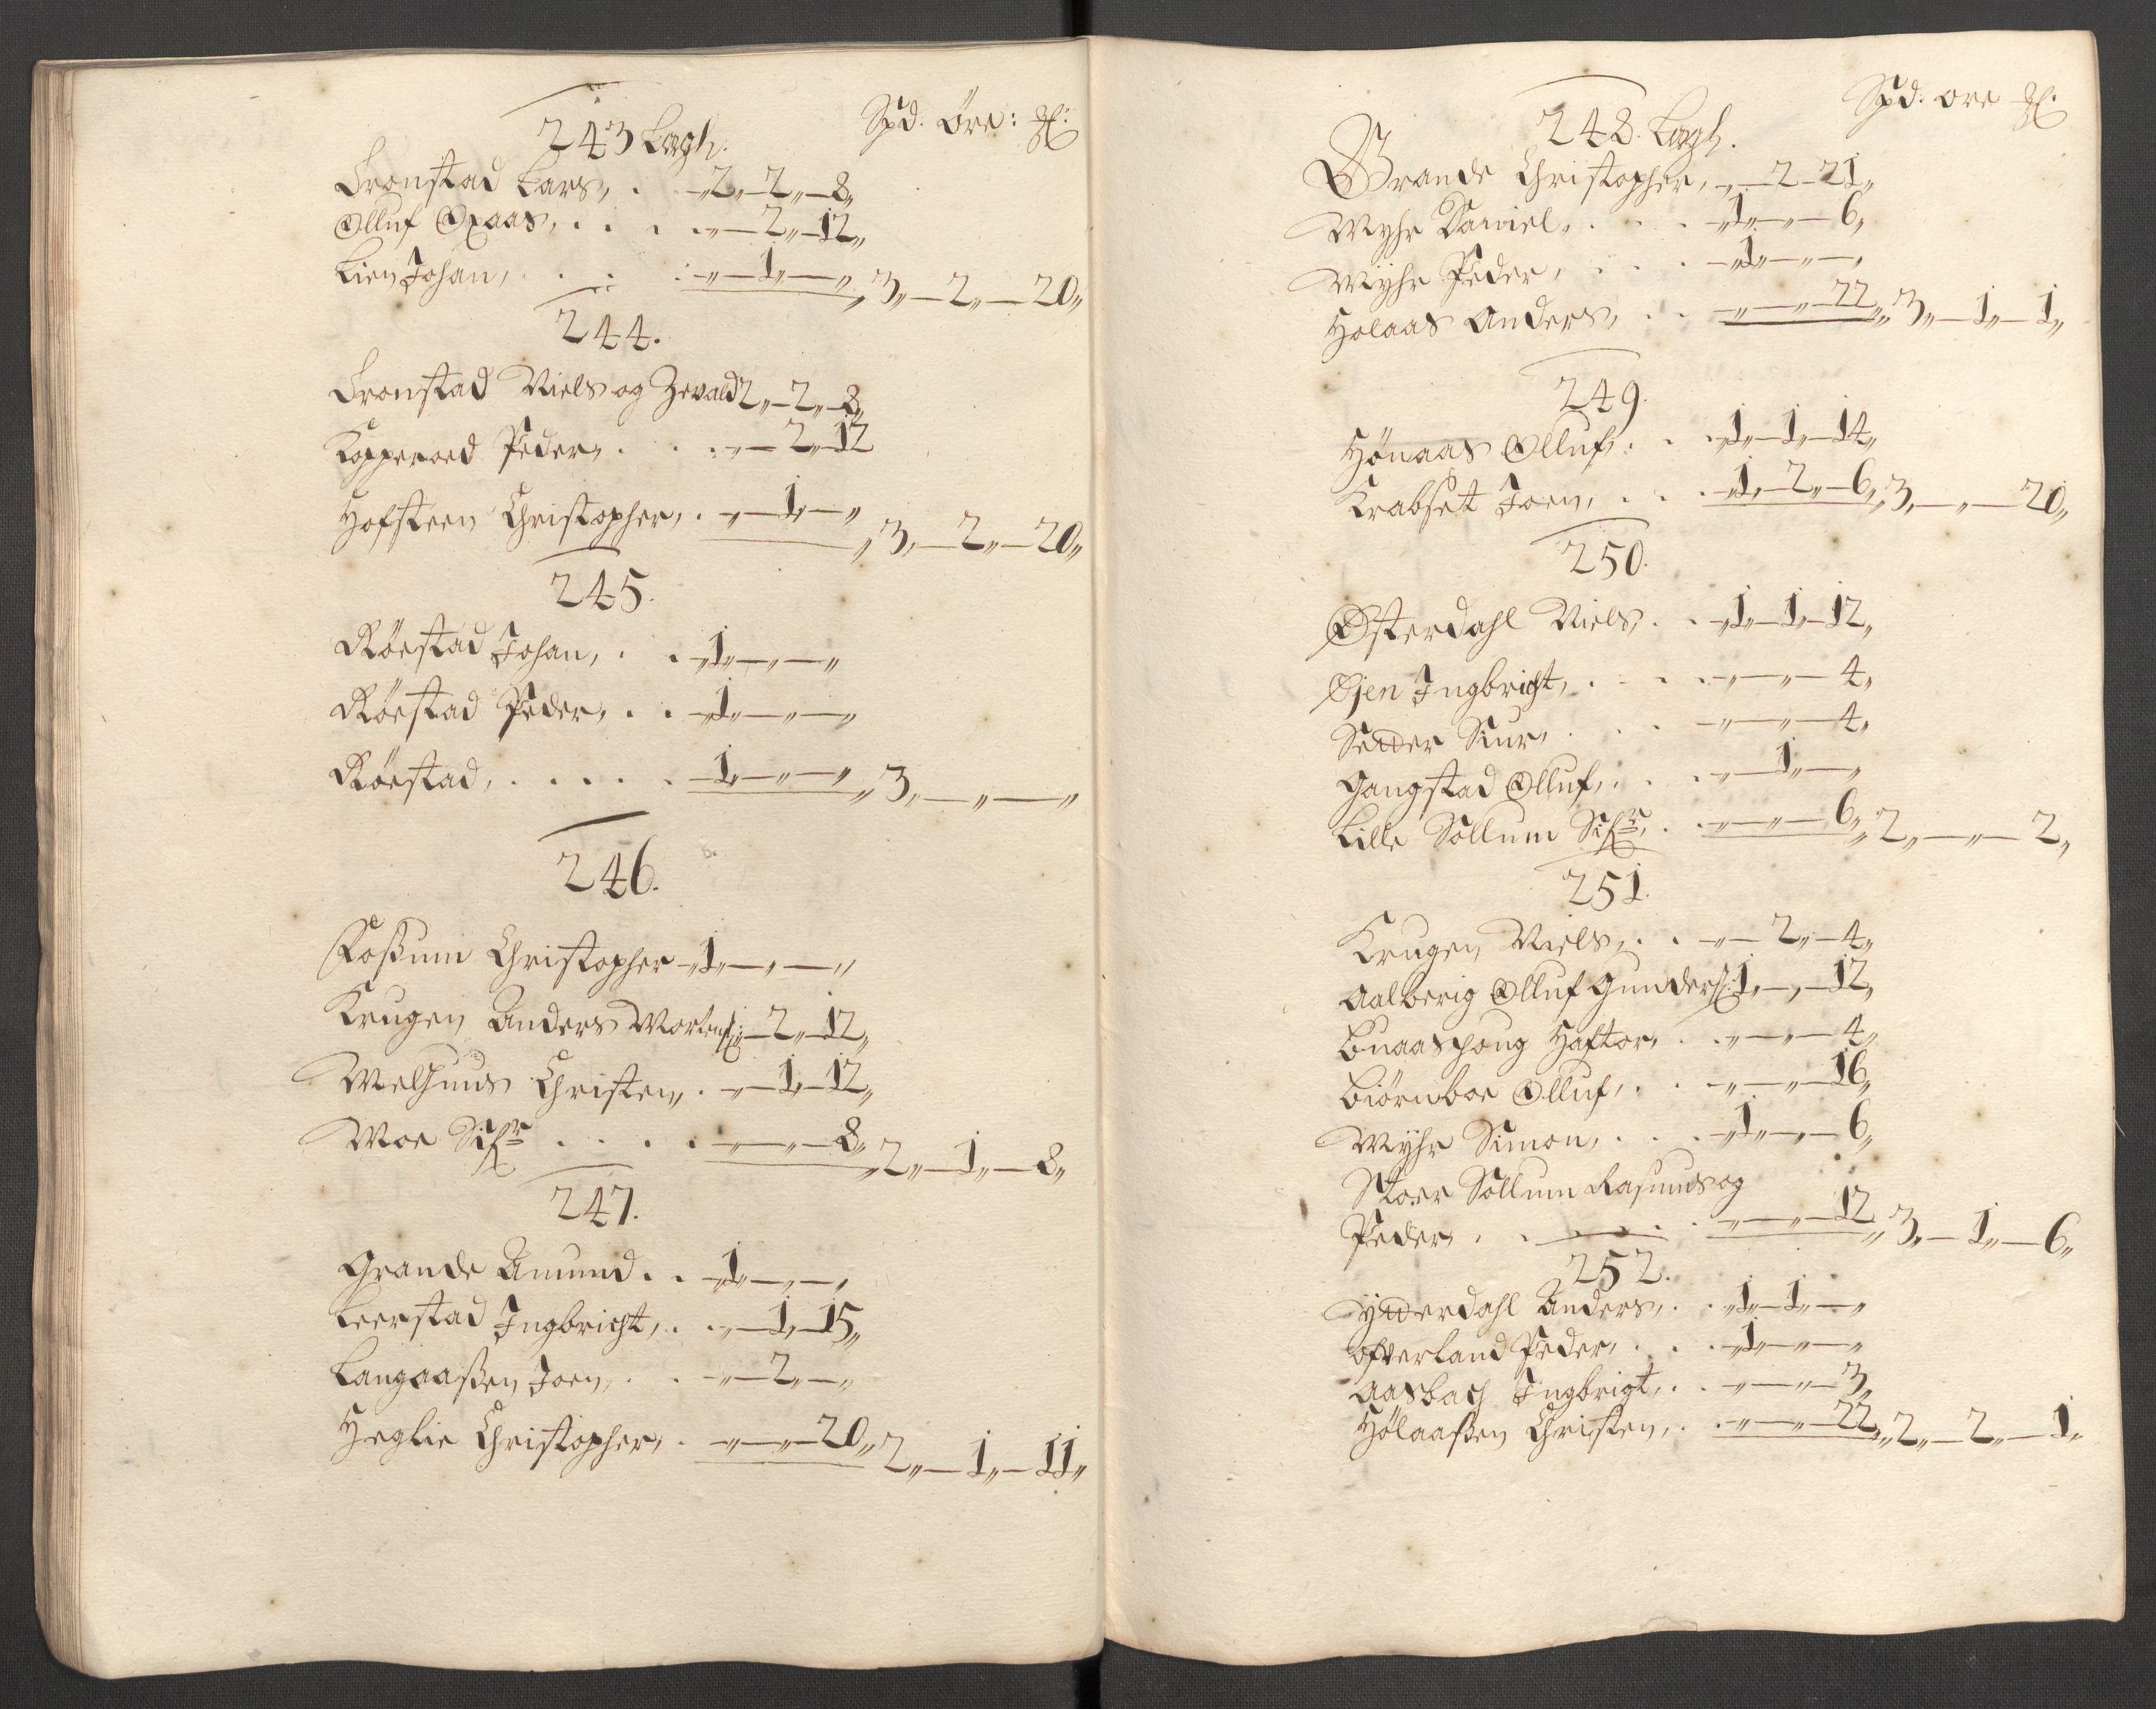 243 Lagh. Spd. Öre: ₰:
Tronstad Lars, . „2„—2„—8„
Olluf Opaas, . . . . „—2„—12„
Lien Johan, . . . „—1„—„ „3„—2„—20„
244.
Tronstad Niels og Zevald 2„—2„—8„
Kopperoed Peder, . . . „—2„—12
Hofsteen Christopher, . „—1„—„ „3„—2„—20„
245.
Röestad Johan, . . „1„—„—„
Röestad Peder, . . „1„—„—„
Röestad, . . . . . „1„—„—„ „3„—„—„
246.
Foßum Christopher „1„—„—„
Krugen Anders Mortens: „—2„—12„
Melhuus Christen, . „—1„—12„
Moe Sifr . . . . „—„—8„ „2„—1„—8„
247.
Grande Amund . . „1„—„—„
Leerstad Ingbricht, . . „—1„—15„
Langaaßen Joen, . . „—2„—„
Heglie Christopher, . „—„—20„ 2„—1„—11„
248. Lagh. Spd. ore ₰:
Grande Christopher, „—2—21„
Myhr Daniel, . . . „1„—„—6„
Myhr Peder, . . . „1„—„—„
Holaas Anders, . . „—„—22„ „3„—1„—1„
249.
Hönaas Olluf, . . „1„—1„—14„
Krabset Joen, . . . „1„—2„—6„ „3„—„—20„
250.
Østerdahl Niels, . . „1„—1„—12„
Øjen Ingbricht, . . . . „—„—4„
Sedder Siur, . . . „—„—4„
Gangstad Olluf, . . . „—1„—„
Lille Sollum Sifr, . . „—„—6„ „2„—„—2„
251.
Krugen Niels, . . „—2„—4„
Aalberig Olluf Gunders: 1„—„—12„
Buaaspong Haftor, . . „—„—4„
Biörnboe Olluf, . . „—„—16„
Myhr Simon, . . . „1„—„—6„
Stoer Sollum Rasmus og
Peder, . . . . . „—„—12„ „3„—1„—6„
252.
Ydderdahl Anders, . . „1„—1„—„
Ofverland Peder, . . . „1„—„—„
Aasbach Ingbrigt, . . „—„—3„
Hölaaßen Christen, . . „—„—22„ „2„—2„—1„